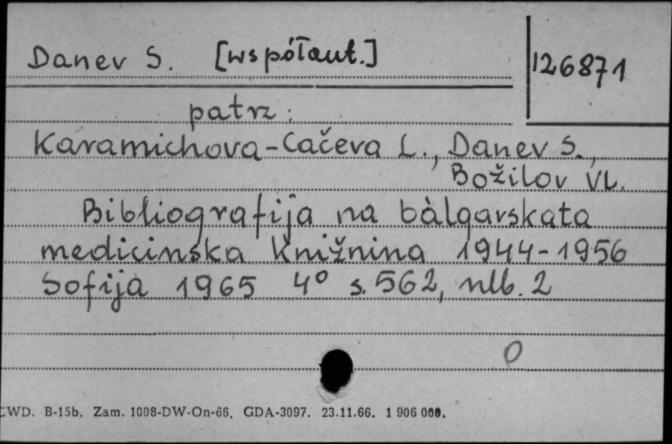 Danev S. [współaut.]
126871
patrz:
Karamichova-Cačeva L., Danev S.,
Božilov VL.
Bibliografija na bàlgarskata
medicinska knižnina 1944-1956
Sofija 1965 4° s. 562, nlb. 2
0
CWD. B-15b. Zam. 1008-DW-On-66. GDA-3097. 23.11.66. 1 906 000.